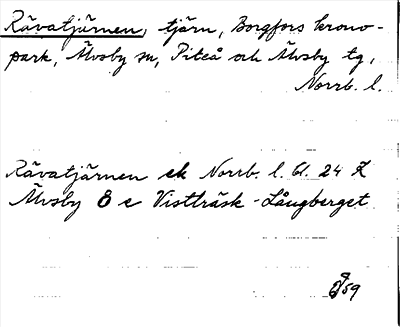 Rävatjärnen, tjärn, Borgfors krono-
park, Älvsby sn, Piteå och Älvsby tg,
Norrb. l.
Rävatjärnen ek Norrb. l. bl. 24 Z
Älvsby 8 e Vistträsk - Långberget
59